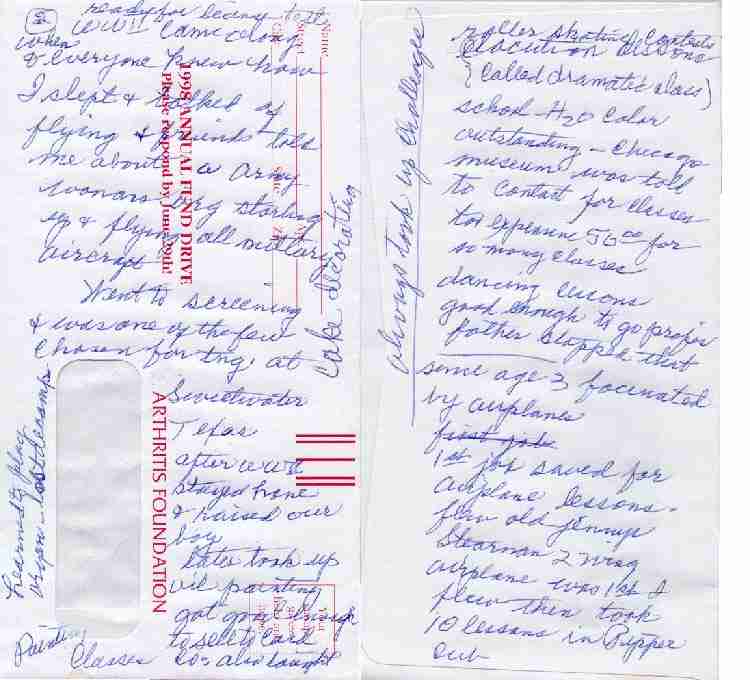 roller skating contests
elocution lessons
(called dramatic class)
school - H2O color
outstanding - Chicago
museum was told
to contact for classes
too expensive 50 00 for
so many classes
dancing lessons
good enough to go profes
father stopped that
since age 3 facinated
by airplanes
first job
1st job saved for
airplane lessons.
flew old jennys
Stearman 2 wing
airplane was 1st I
flew then took
10 lessons in Pipper
Cub
always took up challenges
2
ready for license test
when WWII came along
& everyone knew how
I slept & talked of
flying & friends told
me about a Army
womans brg starting
up & flying all military
aircraft
Went to screening
& was one of the few
chosen for tng. at
Sweetwater
Texas
after WWII
stayed home
& raised our
boys
later took up
oil painting
got good enough
to sell to card
co - also taught
Painting
Classes
learned to play
organ
cake decorating
1998 ANNUAL FUND DRIVE
Please respond by June 29th!
ARTHRITIS FOUNDATION